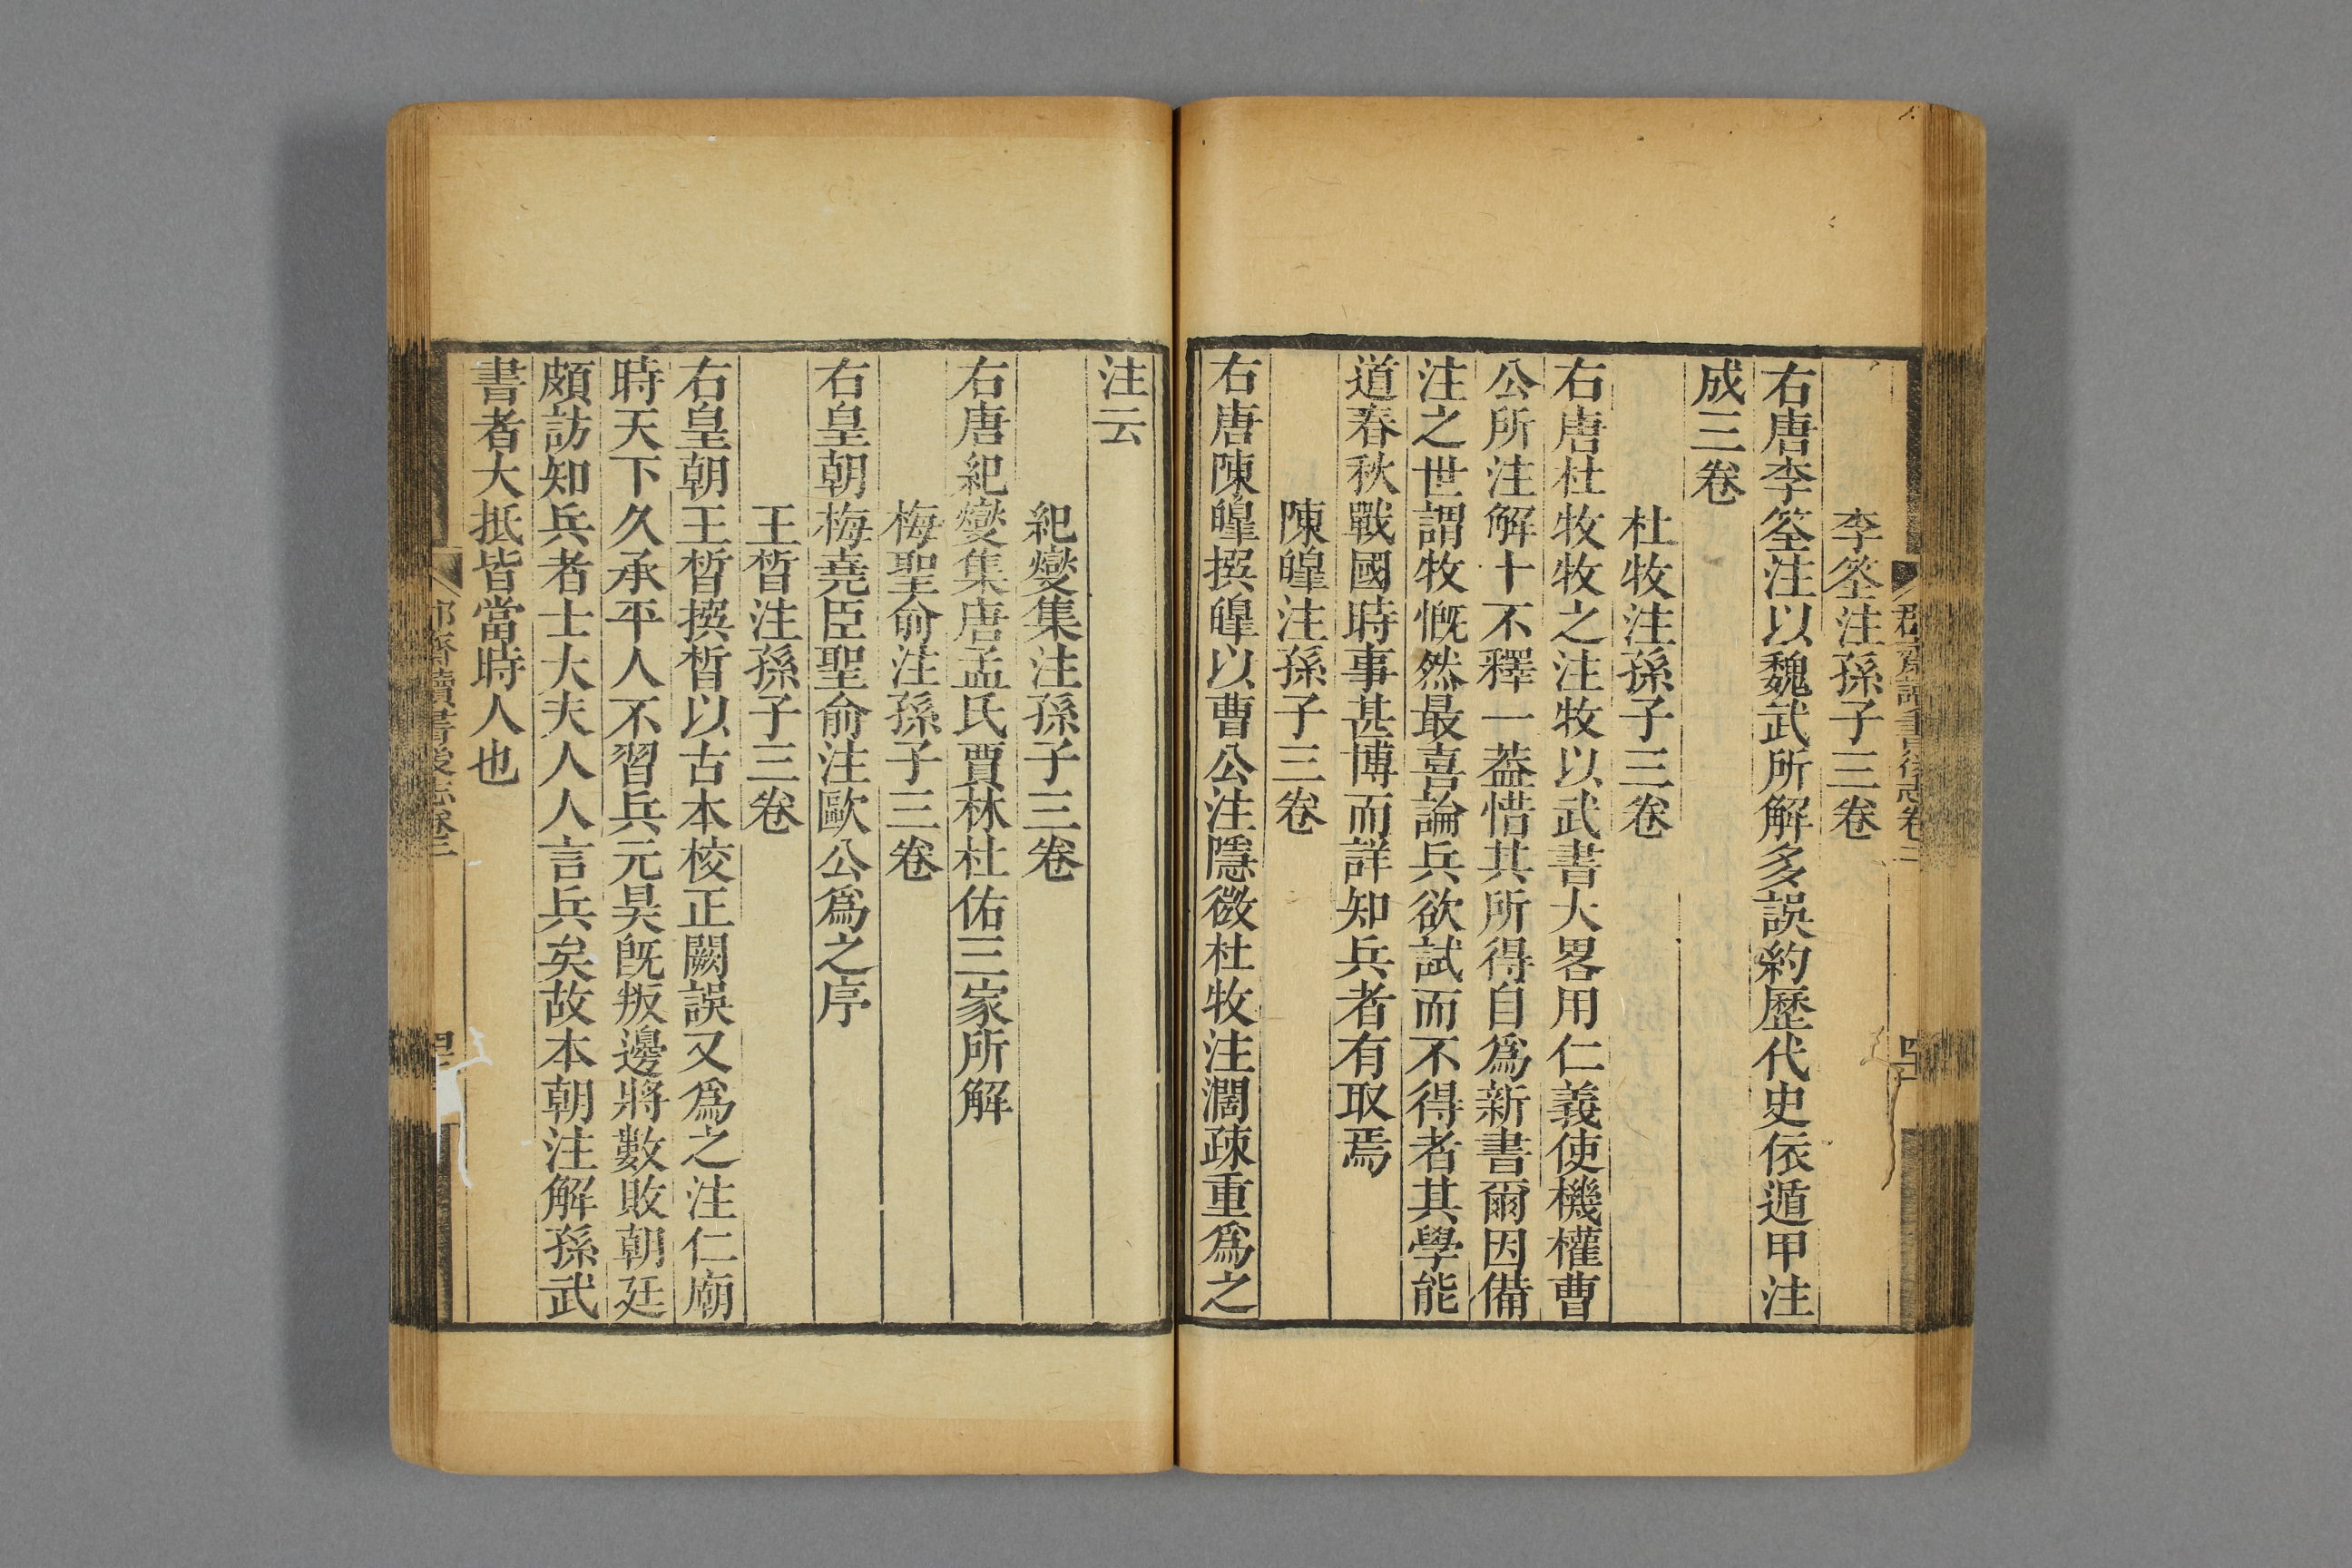 李筌注孫子三卷
右唐李筌注以魏武所解多誤約歷代史依遁甲注
成三卷
杜牧注孫子三卷
右唐杜牧牧之注牧以武書大畧用仁義使機權曹
公所注解十不釋一葢惜其所得自爲新書爾因備
注之世謂牧慨然最喜論兵欲試而不得者其學能
道春秋戰國時事甚博而詳知兵者有取焉
陳皥注孫子三卷
右唐陳皥撰皥以曹公注隱微杜牧注濶疎重爲之
注云
紀燮集注孫子三卷
右唐紀燮集唐孟氏賈林杜佑三家所解
梅聖俞注孫子三卷
右皇朝梅堯臣聖俞注歐公爲之序
王晳注孫子三卷
右皇朝王晳撰晳以古本校正闕誤又爲之注仁廟
時天下久承平人不習兵元昊旣叛邊將數敗朝廷
頗訪知兵者士大夫人人言兵矣故本朝注解孫武
書者大抵皆當時人也